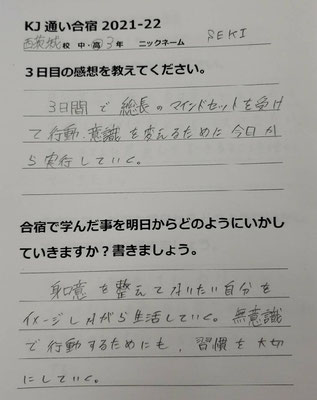 KJ 通い合宿 2021-22
西茨城校 中・高 3 年 ニックネーム SEKI
３日目の感想を教えてください。
3日間で総長のマインドセットを受け
て行動・意識を変えるために今日か
ら実行していく。
合宿で学んだ事を明日からどのようにいかし
ていきますか？書きましょう。
身口意を整えてなりたい自分を
イメージしながら生活していく。無意識
で行動するためにも、習慣を大切
にしていく。